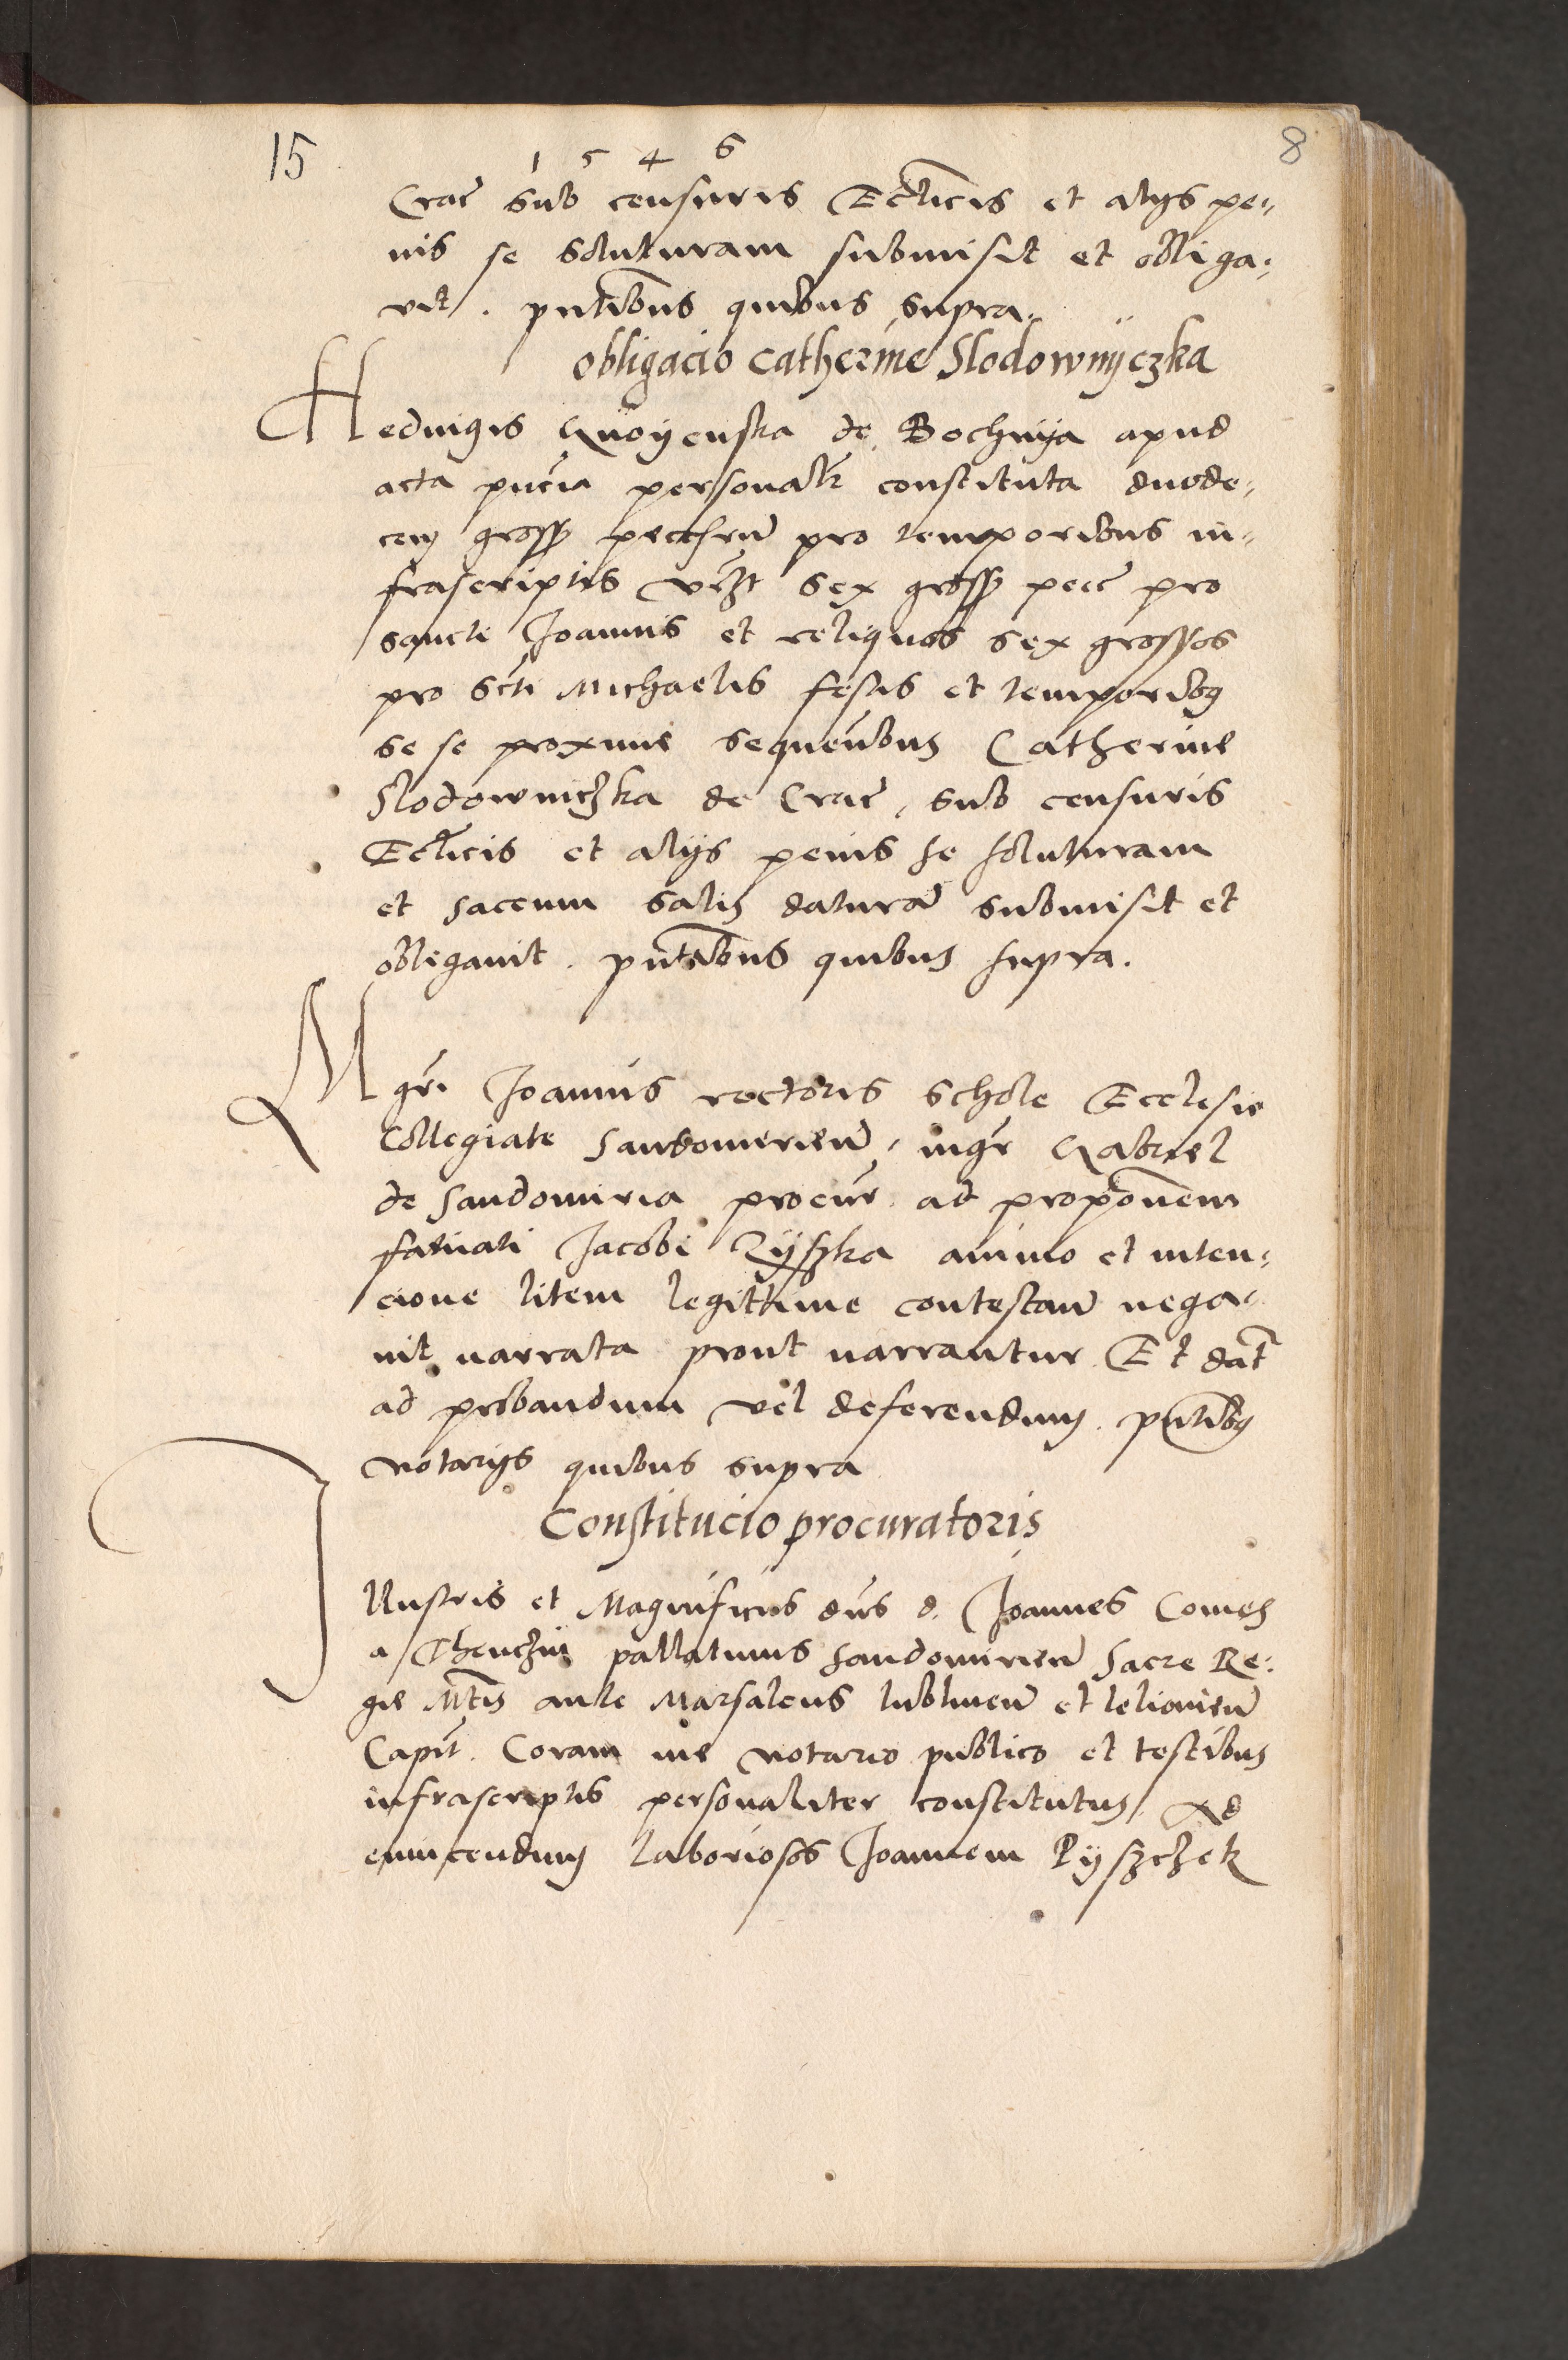 15 1 5 4 6 8
Crac̃ sub censuris Eccl̃icis et alijs pe=
nis se soluturam submisit et obliga=
vit. pñtibus quibus supra.
Obligacio Catherine Slodownÿczka
Hedvigis Gnoyenska de Bochnÿa apud
acta pñcia personalr̃ constituta duode=
cem gross pecchrũ pro temporibus in=
frascriptis vczt sex gross pecc pro
sancti Joannis et reliquos sex grossos
pro scti Michaelis festis et temporibus
se se proxime sequen̄bus Catherine
Slodowniczka de Crac̃, sub censuris
Eccl̃icis et alijs penis se soluturam
et saccum salis daturã submisit et
obligavit. pñtibus quibus supra.
Mgr̃i Joannis rectoris schole Ecclesie
Collegiate Sandomirieñ, mgr̃ Gabriel
de Sandomiria procur̃ ad propo͠nem
fatuati Jacobi Zÿszka animo et inten=
cione litem legittime contestan̄ nega=
vit narrata prout narrantur Et dat̃
ad probandum vel deferendum. pñtibus
notarijs quibus supra
Constitucio procuratoris
Illustris et Magnificus dñs d. Joannes Comes
a Thenczin pallatinus Sandomirieñ Sacre Re=
gie Mt̃is aule Marsalcus lublineñ et lelionieñ
Capit̃. Coram me notario publico et testibus
infrascriptis personaliter constitutus, Ad
evincendum laboriosos Joannem Pÿszczek